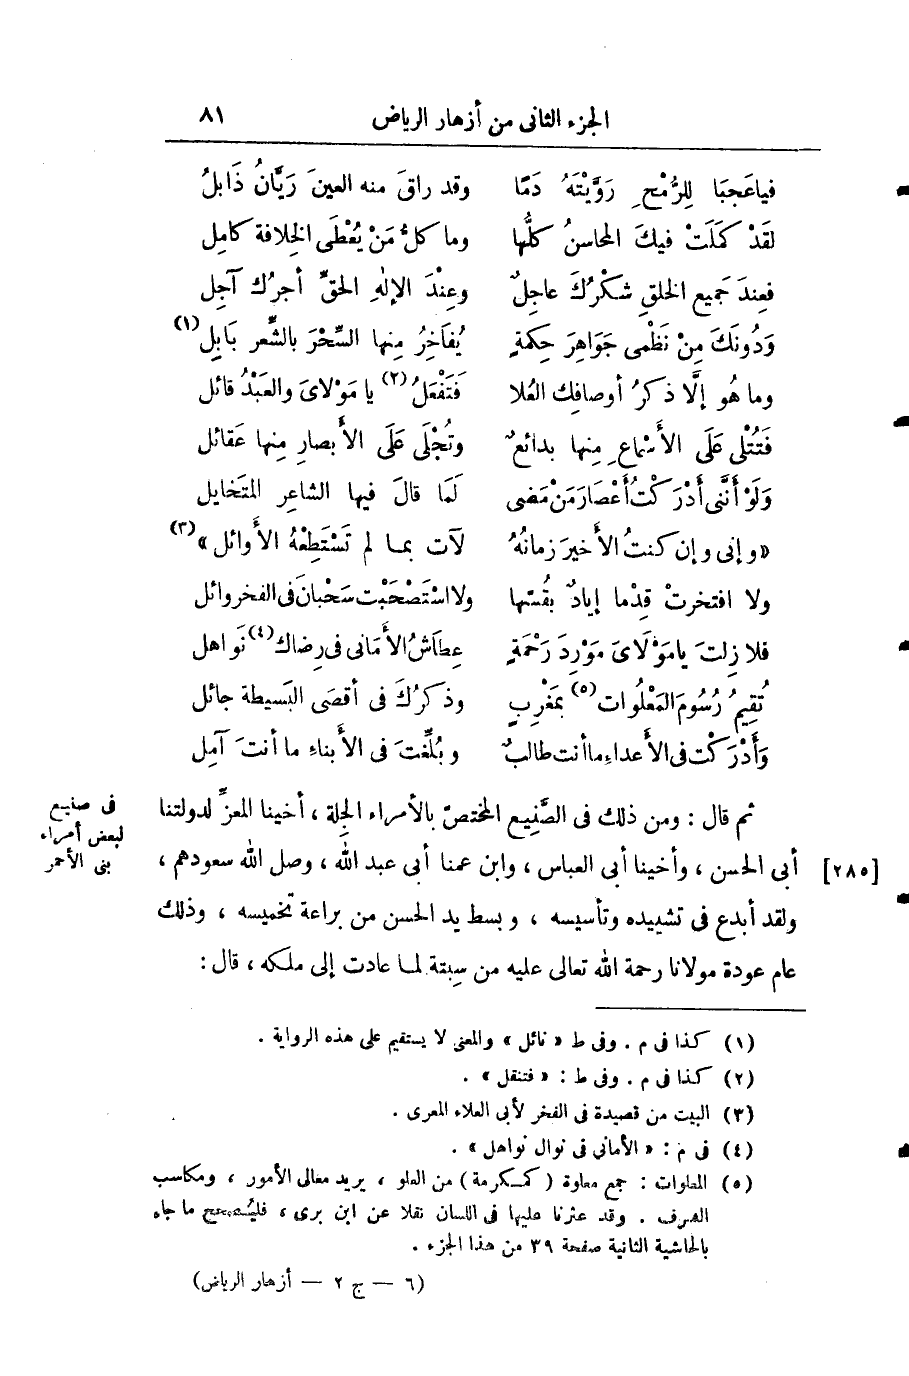 الجزء الثانى من أزهار الرياض ٨١
فياعَجبَا لِلرُّمْحِ رَوَّيْتَهُ دَمًا وقد راقَ منه العينَ رَيَّانُ ذَابلُ
لقَدْ كَمَلَتْ فيكَ المحاسنُ كلُّها وما كلُّ مَنْ يُعْطَى الخِلافة كامِل
فعِندَ جَميع الخلقِ شكْرُكَ عاجِلٌ وعِنْدَ الإلٰهِ الحقِّ أجرُك آجِل
وَدُونَكَ مِنْ نَظْمِى جَوَاهِرَ حِكمةٍ يُفاَخِرُ مِنها السِّحْرَ بالشِّعر بَابِل (١)
وما هُو إلَّا ذكرُ أوصافِك العُلا فَتَفْعَلُ (٢) يا مَوْلاىَ والعَبْدُ قائل
فَتُتْلى عَلَى الأسْماعِ مِنها بدائعٌ وتُجْلَى عَلَى الأبصارِ مِنها عَقائل
وَلَوْ أنَّنى أدْرَكْتُ أعْصَارَ مَنْ مَضى لَمَا قالَ فيها الشاعر المتَخايل
« وإنى وإن كنتُ الأخيرَ زمانُهُ لآت بما لم تَسْتَطِعْهُ الأوائل » (٣)
ولا افتخرتْ قِدْما إيادٌ بقُسّها ولا اسْتَصْحَبْت سَحْبانَ فى الفخر وائل
فلا زلتَ يا مَوْلَاىَ مَوْرِدَ رَحْمةٍ عِطاَشُ الأمَانى فى رِضاك (٤) نَوَاهل
تُقيمُ رُسُومَ المَعْلُوات (٥) بمَغْرِبٍ وذكرُكَ فى أقصَى البَسيطة جائل
وَأَدْرَكْتَ فى الأعداءِ ما أنت طالبٌ وبُلِّغتَ فى الأبناءِ ما أنتَ آمِل
ثم قال : ومن ذلك فى الصَّنِيع المختصّ بالأمراء الجِلة ، أخينا المعزِّ لدولتنا
فى صنيع لبعض أمراء بنى الأحمر
[٢٨٥] أبى الحسن ، وأخينا أبى العباس ، وابن عمنا أبى عبد الله ، وصل الله سعودهم ،
ولقد أبدع فى تشييده وتأسيسه ، وبسط يد الحسن من براعة تخميسه ، وذلك
عام عودة مولانا رحمة الله تعالى عليه من سِبتة لما عادت إلى ملكه ، قال :
(١) كذا فى م . وفى ط « نائل » والمعنى لا يستقيم على هذه الرواية .
(٢) كذا فى م . وفى ط : « فتنقل » .
(٣) البيت من قصيدة فى الفخر لأبى العلاء المعرى .
(٤) فى م : « الأمانى فى نوال نواهل » .
(٥) المعلوات : جمع معلوة ( كمكرمة ) من العلو ، يريد معالى الأمور ، ومكاسب
الشرف . وقد عثرنا عليها فى اللسان نقلا عن ابن برى ، فليُصحح ما جاء
بالحاشية الثانية صفحة ٣٩ من هذا الجزء .
(٦ — ج ٢ — أزهار الرياض)